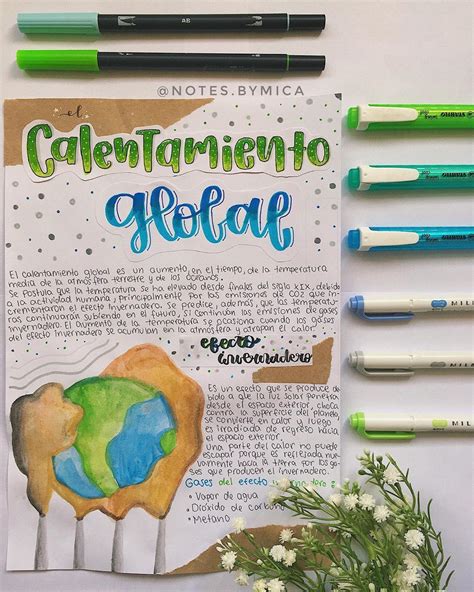 AB
@NOTES.BYMICA
el
Calentamiento
global
El calentamiento global es un aumento, en el tiempo, de la temperatura
media de la atmósfera terrestre y de los océanos.
Se postula que la temperatura se ha elevado desde finales del siglo XIX, debido
a la actividad humana, principalmente por las emisiones de CO2 que in-
crementaron el efecto invernadero. Se predice, además, que las temperatu-
ras continuarán subiendo en el futuro, si continúan las emisiones de gases
invernadero. El aumento de la temperatura se ocasiona cuando los gases
del efecto invernadero se acumulan en la atmósfera y atrapan el calor.
efecto
invernadero
Es un efecto que se produce de-
bido a que la luz solar penetra
desde el espacio exterior, choca
contra la superficie del planeta,
se convierte en calor y luego
es irradiada de regreso hacia
el espacio exterior.
Una parte del calor no puede
escapar porque es reflejada nue-
vamente hacia la tierra por los ga-
ses que producen el invernadero.
Gases del efecto invernadero:
• Vapor de agua
• Dióxido de carbono
• Metano
STABILO
STABILO
STABILO
MIL
MIL
MIL